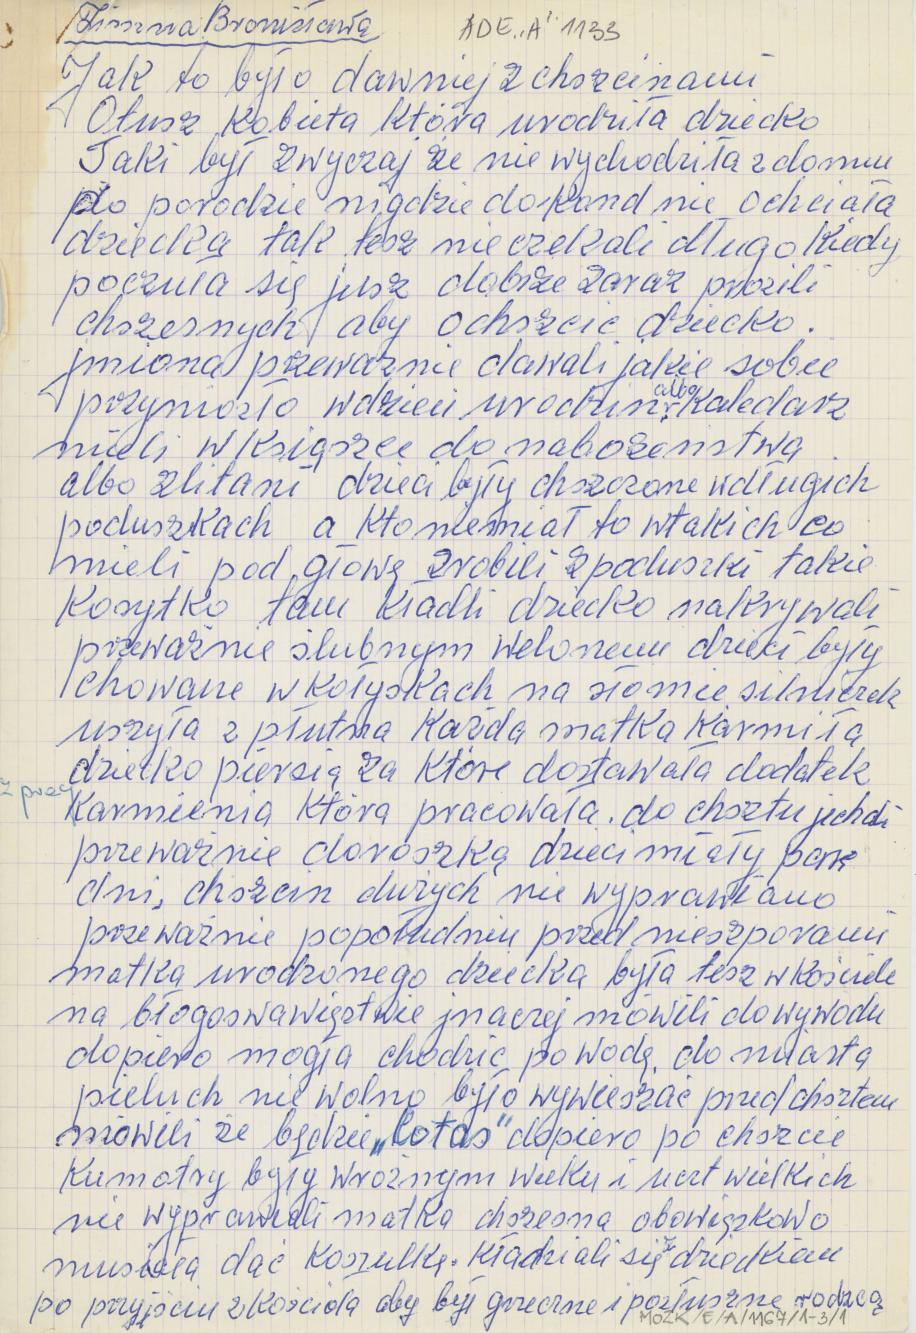 Bronisława ADE „A" 1133
Jak to było dawniej z chszcinami
Otusz kobieta która urodziła dziecko
Taki był zwyczaj że nie wychodziła z domu
po porodzie nigdzie dokand nie ochciała
dziecka tak tesz nie czekali długo kiedy
poczuła się jusz dobrze zaraz prosili
chszesnych aby ochszcic dziecko.
jmiona przeważnie dawali jakie sobie
przyniozło wdzień urodzin albo kaledarz
mieli w książce do nabożeństwa
albo zlitani dzieci były chszczone wdługich
poduszkach a kto niemiał to wtakich co
mieli pod głową zrobili z poduszki takie
kosytko tam kładli dziecko nakrywali
przeważnie ślubnym welonem dzieci były
chowane w kołyskach na słomie silniczek
uszyła z płutna Każda matka karmiła
dziecko piersią za które dostawała dodatek
z pracy
karmienia która pracowała. do chsztu jechali
przeważnie doroszką dzieci miały pare
dni, chszcin dużych nie wyprawiano
przeważnie popołudniu przed nieszporami
matka urodzonego dziecka była tesz w kościele
na błogoswawięstwie jnaczej mówili do wywodu
dopiero mogła chodzić po wodę, do miasta
pieluch nie wolno było wywieszać przed chsztem
mówili że będzie „łotas" dopiero po chszcie
Kumotry były wrożnym wieku i uczt wielkich
nie wyprawiali matka chszesna obowiązkowo
musiała dać koszulkę. Kładziali się z dzieckiem
po przyjściu z kościoła aby był grzeczne i posłuszne rodzcą
MOZK/E/A/1167/1-3/1